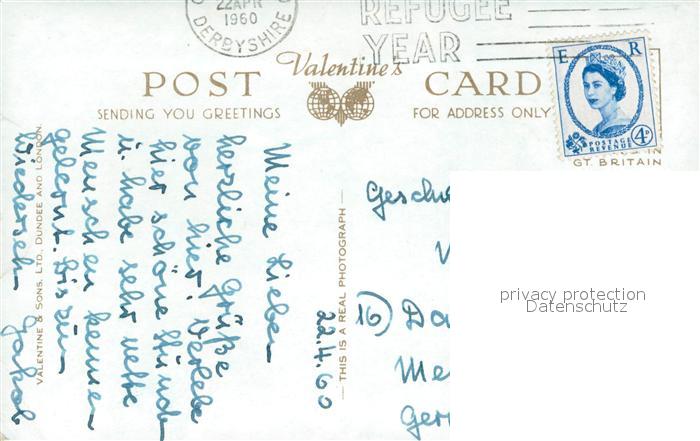 22 APR
1960
DERBYSHIRE
REFUGEE
YEAR
E R
POSTAGE
REVENUE
4D
GT. BRITAIN
Valentine's
POST CARD
SENDING YOU GREETINGS
FOR ADDRESS ONLY
22.4.60
Meine Lieben
herzliche Grüße
von hier! Verlebe
hier schöne Stunden
u. habe sehr nette
Menschen kennen
gelernt. Bis zum
Wiedersehn Jakob
VALENTINE & SONS, LTD., DUNDEE AND LONDON.
— THIS IS A REAL PHOTOGRAPH —
Geschw
16) Da
Me
Ger
privacy protection
Datenschutz